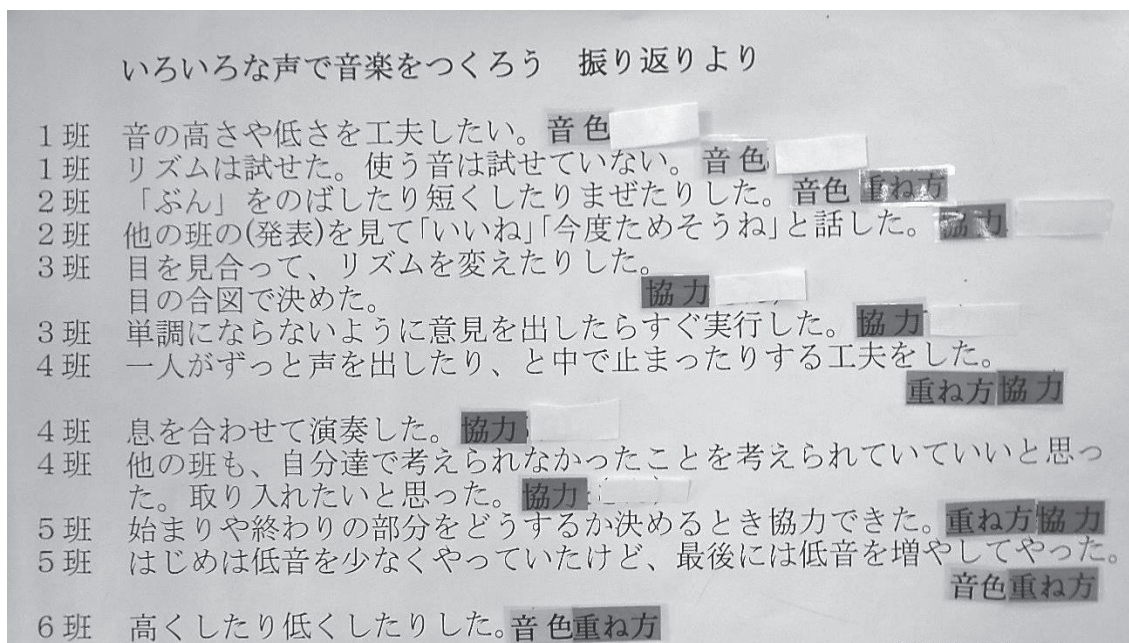 いろいろな声で音楽をつくろう 振り返りより
1班 音の高さや低さを工夫したい。音色
1班 リズムは試せた。使う音は試せていない。音色
2班 「ぶん」をのばしたり短くしたりまぜたりした。音色 重ね方
2班 他の班の(発表)を見て「いいね」「今度ためそうね」と話した。協力
3班 目を見合って、リズムを変えたりした。
目の合図で決めた。 協力
3班 単調にならないように意見を出したらすぐ実行した。協力
4班 一人がずっと声を出したり、と中で止まったりする工夫をした。
重ね方 協力
4班 息を合わせて演奏した。協力
4班 他の班も、自分達で考えられなかったことを考えられていていいと思っ
た。取り入れたいと思った。協力
5班 始まりや終わりの部分をどうするか決めるとき協力できた。重ね方 協力
5班 はじめは低音を少なくやっていたけど、最後には低音を増やしてやった。
音色 重ね方
6班 高くしたり低くしたりした。音色 重ね方